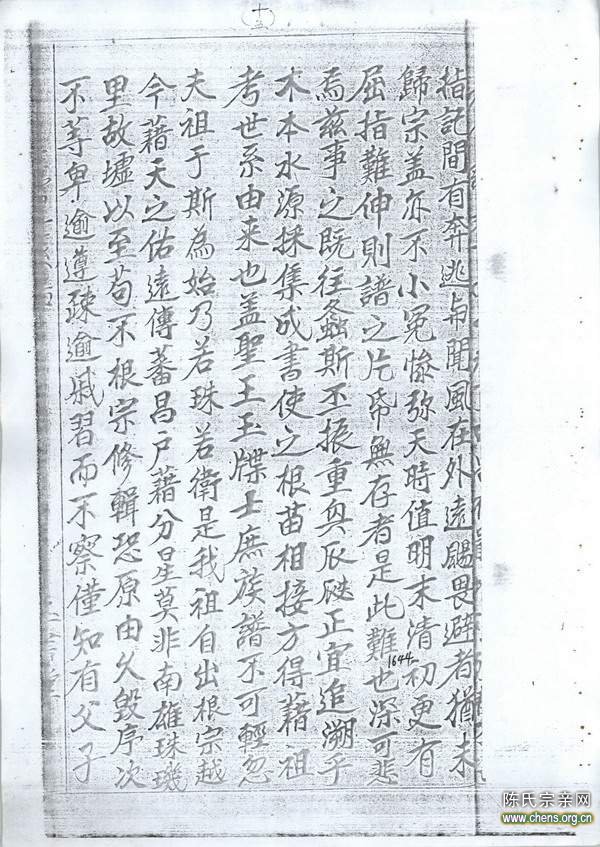 十三
指記間有奔逃與聞風在外遠颺畏避者猶未
歸宗盖亦不小冤慘弥天時值明末清初更有
1644
屈指難伸則譜之片帋無存者是此難也深可悲
焉兹事之既往螽斯丕振重興瓜瓞正宜追溯乎
木本水源採集成書使之根苗相接方得藉祖
考世系由来也盖聖王玉牒士庶族譜不可輕忽
夫祖于斯為始乃若珠若衛是我祖自出根宗越
今藉天之佑遠傳蕃昌户藉分星莫非南雄珠璣
里故墟以至苟不根宗修輯恐原由久毁序次
不等卑逾遵疎逾戚習而不察僅知有父子
陈氏宗亲网
www.chens.org.cn